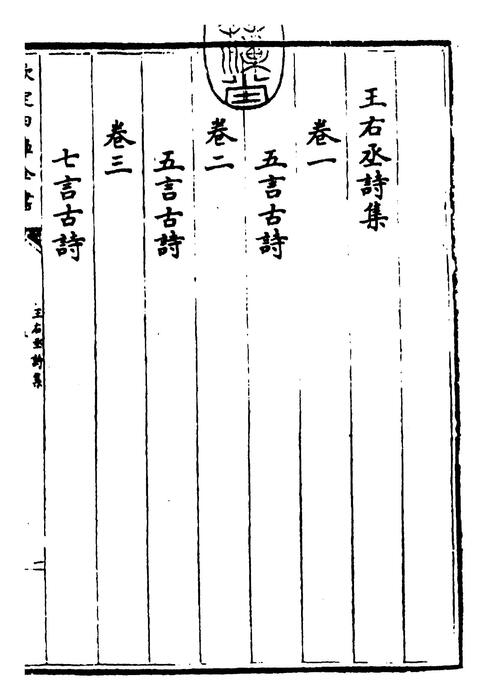 王右丞詩集
卷一
五言古詩
卷二
五言古詩
卷三
七言古詩
欽定四庫全書
王右丞詩集
二